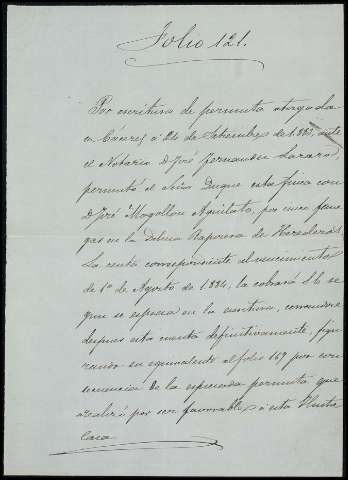 Folio 121.
Por escritura de permuta otorgada
en Cáceres á 24 de Setiembre de 1883, ante
el Notario D. José Fernandez
permutó el Sr. Duque esta finca con
D. José Mogollon por cinco fane
gas en la Dehesa Raposera de Herederos.
La renta correspondiente al vencimiento
de 1º de Agosto de 1884, la cobrará S.E. se
gun se espresa en la escritura, cerrandose
despues esta cuenta definitivamente, figu
rando su equivalente al folio 169 por con
secuencia de la espresada permuta que
realizó por ser favorable á esta Ilustre
Casa.